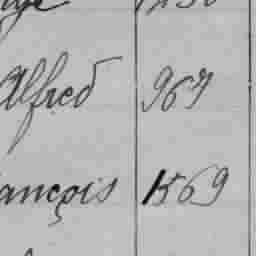 Alfred 967
ançois 1569